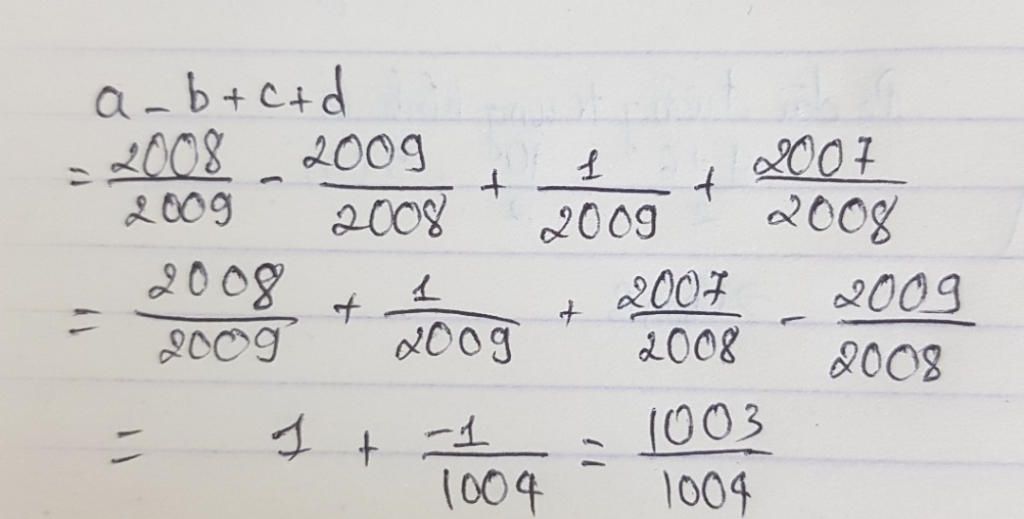 a - b + c + d
= 2008/2009 - 2009/2008 + 1/2009 + 2007/2008
= 2008/2009 + 1/2009 + 2007/2008 - 2009/2008
= 1 + -1/1004 = 1003/1004